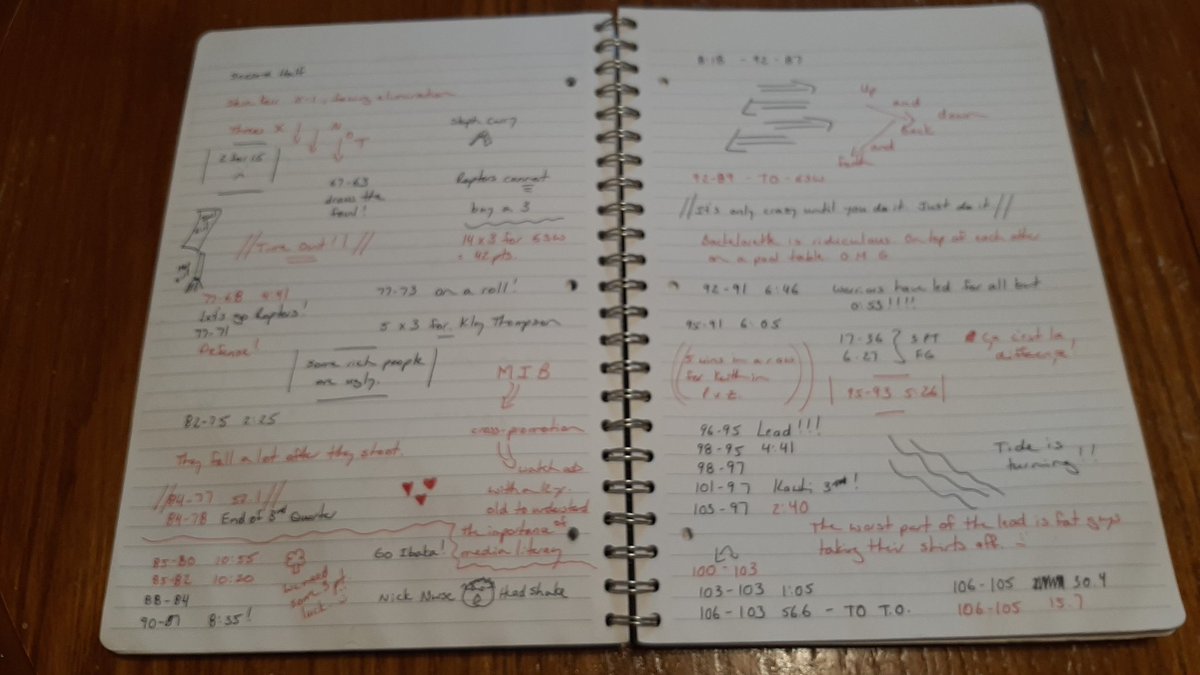 Second Half
down 3-1, facing elimination
Threes X N
O
T
2 for 15
Steph Curry
67-63
draws the
foul!
Raptors cannot
buy a 3
// Time Out!! //
14 x 3 for GSW
= 42 pts.
77-68 4:41
Let's go Raptors!
77-71
Defense!
77-73 on a roll!
5 x 3 for Klay Thompson
Some rich people
are ugly.
MIB
cross-promotion
watch ads
with a
old to understand
the importance of
media literacy
82-75 2:25
They fall a lot after they shoot.
// 84-77 52.1 //
84-78 End of 3rd Quarter
85-80 10:55
85-82 10:20
88-84
90-87 8:35!
we need
some 3 pt.
luck
Go Ibaka!
Nick Nurse Head shake
8:18 - 92-87
Up
and
down
Back
and
Forth
92-89 - TO - GSW
// It's only crazy until you do it. Just do it //
Bachelorette is ridiculous. On top of each other
on a pool table. O M G
92-91 6:46 Warriors have led for all but
0:53!!!!
95-91 6:05
17-36 } 3 PT
6-27 FG
Ça c'est la
différence!
5 wins in a row
for Keith in
95-93 5:26
96-95 Lead!!!
98-95 4:41
98-97
101-97 Kawhi 3!
103-97 2:40
Tide is
turning!!
The worst part of the lead is fat guys
taking their shirts off.
100-103
103-103 1:05
106-103 56.6 - TO T.O.
106-105 30.4
106-105 15.7